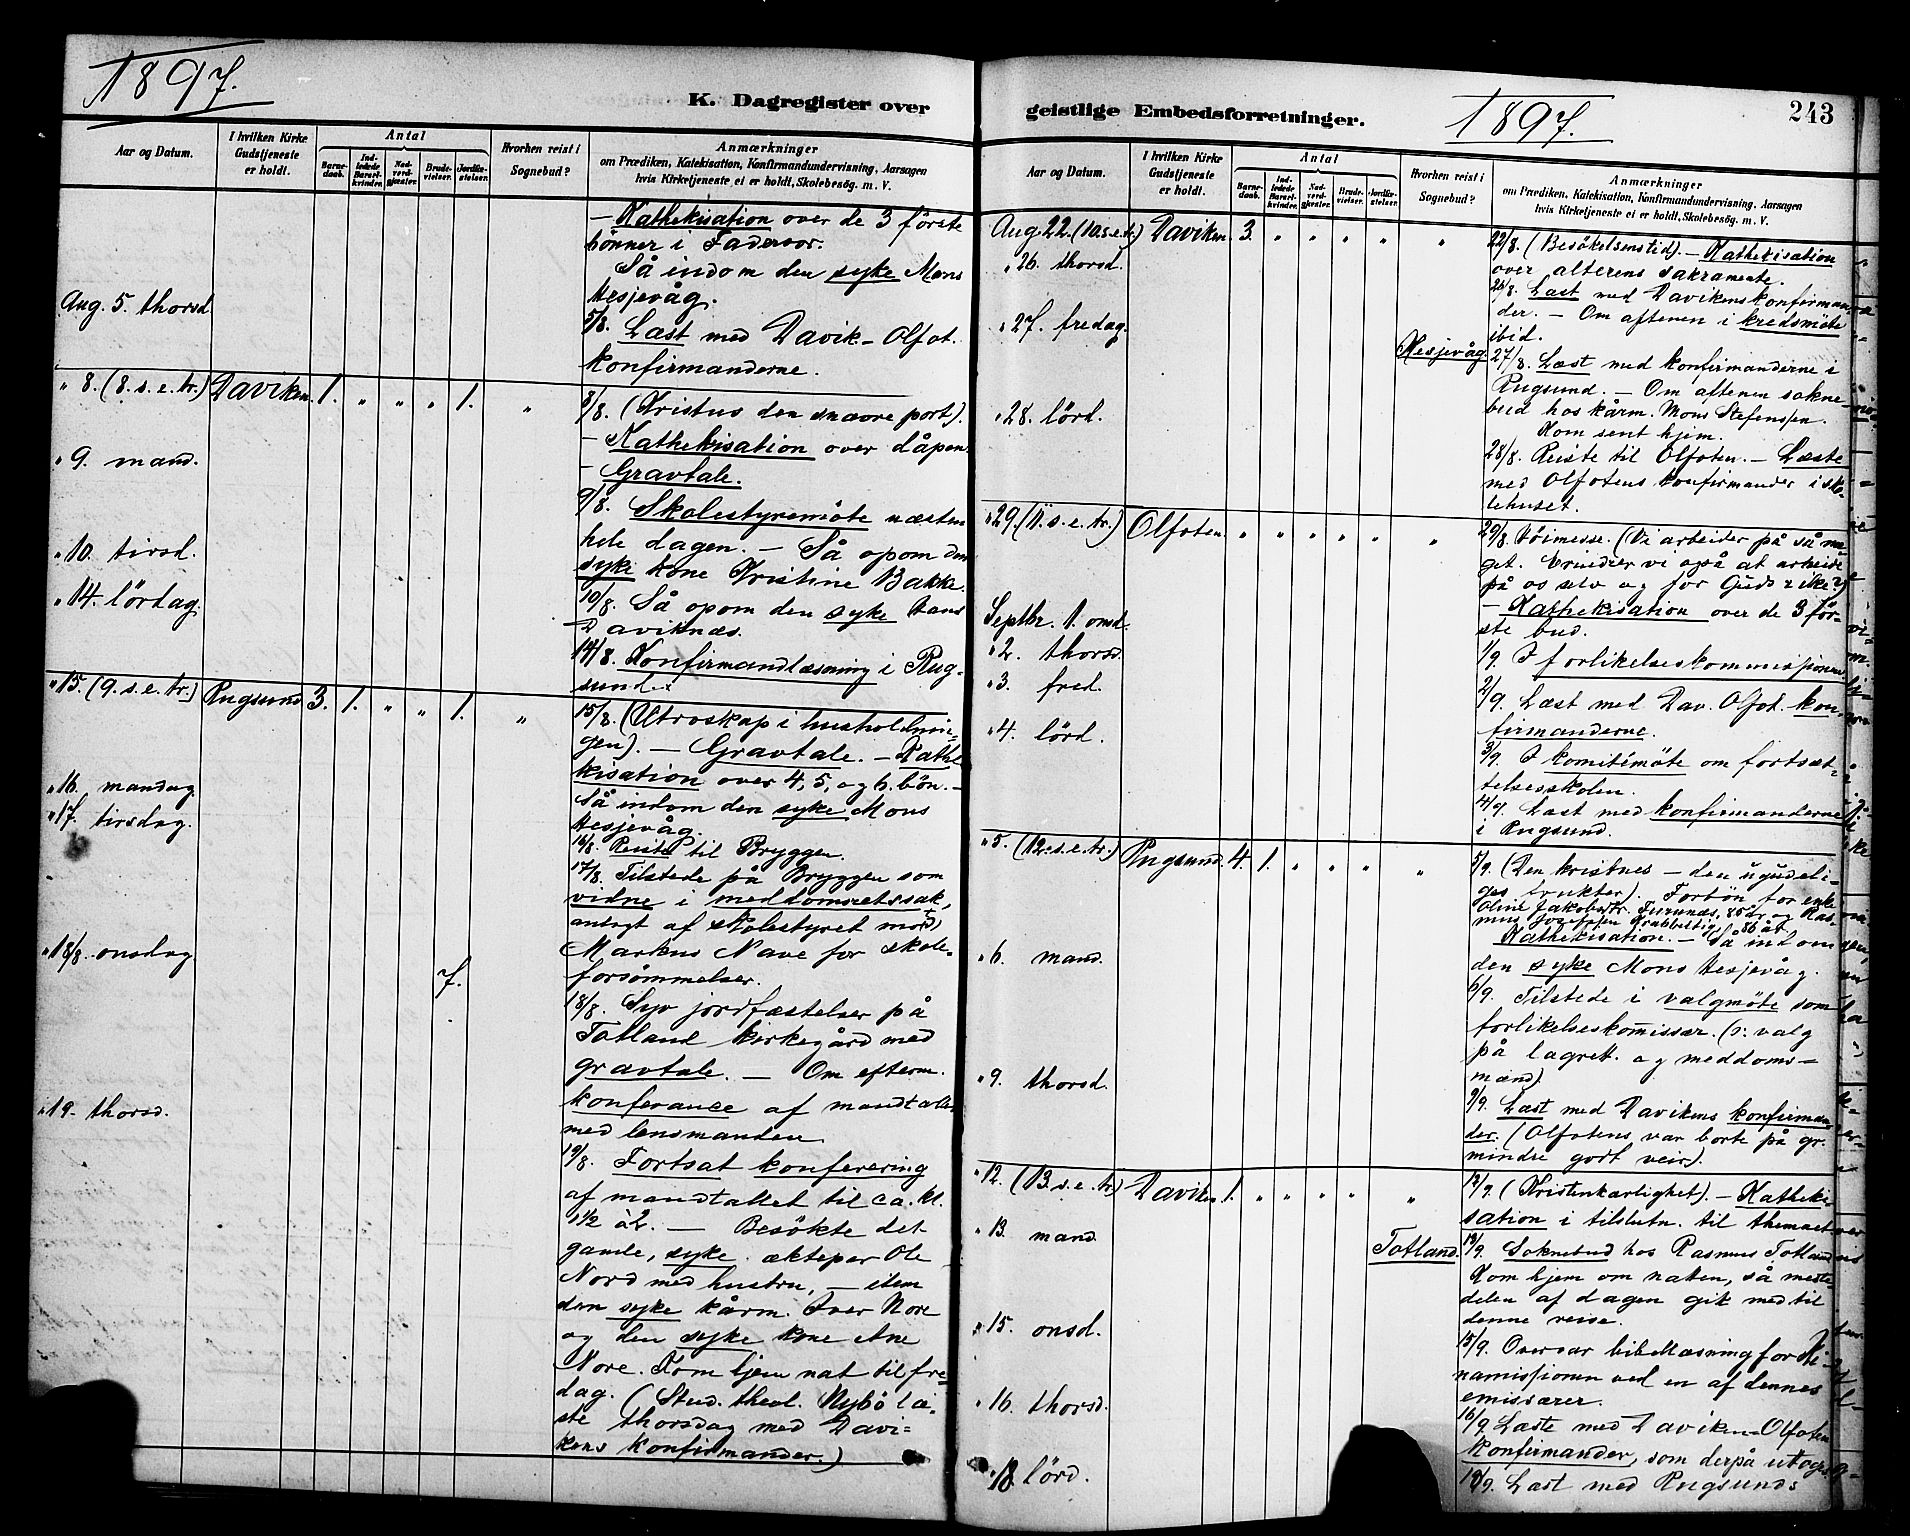 1897.
K. Dagregister over
Aar og Datum.
I hvilken Kirke Gudstjeneste er holdt.
Antal
Barnedaab.
Indledede Barselkvinder.
Nadverdgjæster.
Brudevielser.
Jordfæstelser.
Hvorhen reist i Sognebud?
Anmærkninger
om Prædiken, Katekisation, Konfirmandundervisning, Aarsagen
hvis Kirketjeneste ei er holdt, Skolebesøg. m. V.
– Kathekisation over de 3 förste
bönner i Fadervor.
Så indom den syke Mons
Hesjevåg.
Aug. 5. thorsd.
5/8. Læst med Davik-Olfot.
konfirmanderne.
" 8. (8. s. e. tr.) Daviken 1. " " " 1. "
8/8. (Kristus den snævre port).
– Kathekisation over dåpen.
– Gravtale.
" 9. mand.
9/8. Skolestyremöte næsten
hele dagen. – Så opom den
syke kone Kristine Bakke.
" 10. tirsd.
10/8. Så opom den syke Hans
Daviknæs.
" 14. lörtag.
14/8. Konfirmandlæsning i Rug-
sund.
" 15. (9. s. e. tr.) Rugsund 3. 1. " " 1. "
15/8. (Utroskap i husholdnin-
gen). – Gravtale. – Kathe-
kisation over 4, 5, og 6. bön. –
Så indom den syke Mons
Hesjevåg.
" 16. mandag
16/8. Reiste til Bryggen.
" 17. tirsdag.
17/8. Tilstede på Bryggen som
vidne i meddomsretssak,
anlagt af skolestyret mot
Markus Nave for skole-
forsömmelser.
" 18/8. onsdag
7.
18/8. Syv jordfæstelser på
Totland kirkegård med
gravtale. – Om efterm.
konferance af mandtalet
med lensmanden.
" 19. thorsd.
19/8. Fortsat konferering
af mandtallet til ca. kl.
1½ à 2. – Besökte det
gamle, syke ektepar Ole
Nord med hustru, – item
den syke kårm. Iver Nore
og den syke kone Ane
Nore. Kom hjem nat til fre-
dag. (Stud. theol. Nybö læ-
ste thorsdag med Davi-
kens konfirmander.)
geistlige Embedsforretninger.
1897.
243
Aar og Datum.
I hvilken Kirke Gudstjeneste er holdt.
Antal
Barnedaab.
Indledede Barselkvinder.
Nadverdgjæster.
Brudevielser.
Jordfæstelser.
Hvorhen reist i Sognebud?
Anmærkninger
om Prædiken, Katekisation, Konfirmandundervisning, Aarsagen
hvis Kirketjeneste ei er holdt, Skolebesøg. m. V.
Aug. 22. (10. s. e. tr.) Daviken 3. " " " " "
22/8. (Besökelsenstid). – Kathekisation
over alterens sakramente.
" 26. thorsd.
26/8. Læst med Davikens konfirman-
der. – Om aftenen i kredsmöte
ibid.
" 27. fredag.
Hesjevåg.
27/8. Læst med konfirmanderne i
Rugsund. – Om aftenen sokne-
bud hos kårm. Mons Stefenssen.
Kom sent hjem.
" 28. lörd.
28/8. Reiste til Olfoten. – Læste
med Olfotens konfirmander i sko-
lehuset.
" 29. (11. s. e. tr.) Olfoten " " " " " "
29/8. Höimesse. (Vi arbeider på så me-
get. Erindrer vi også at arbeide
på os selv og for Guds rike?)
– Kathekisation over de 3 för-
ste bud.
Septbr. 1. onsd.
1/9. I forlikelseskommissionen.
" 2. thorsd.
2/9. Læst med Dav. Olfot. kon-
firmanderne.
" 3. fred.
3/9. I komitémöte om fortsæt-
telsesskolen.
" 4. lörd.
4/9. Læst med konfirmanderne
i Rugsund.
" 5. (12. s. e. tr.) Rugsund 4. 1. " " " "
5/9. (Den kristnes – den ugudeli-
ges frukter). Forbön for enke
Oline Jakobsdtr. Furunæs, 85 år og Ras-
mus Josefssen 86 år.
Kathekisation. – Så ind om
den syke Mons Hesjevåg.
" 6. mand.
6/9. Tilstede i valgmöte som
forlikelseskommissær. (o: valg
på lagrett. og meddoms-
mænd).
" 9. thorsd.
9/9. Læst med Davikens konfirman-
der. (Olfotens var borte på gr.
mindre godt veir).
" 12. (13. s. e. tr.) Daviken 1. " " " " "
12/9. (Kristenkærlighet). – Katheki-
sation i tilslutn. til themaet
" 13. mand
Totland.
13/9. Soknebud hos Rasmus Totland
Kom hjem om naten, så meste-
delen af dagen gik med til
denne reise.
" 15. onsd.
15/9. Overvar bibellæsning for Ki-
namissionen ved en af dennes
emissærer.
" 16. thorsd.
16/9. Læste med Daviken-Olfoten
konfirmander, som derpå
" 18. lörd.
18/9. Læst med Rugsunds